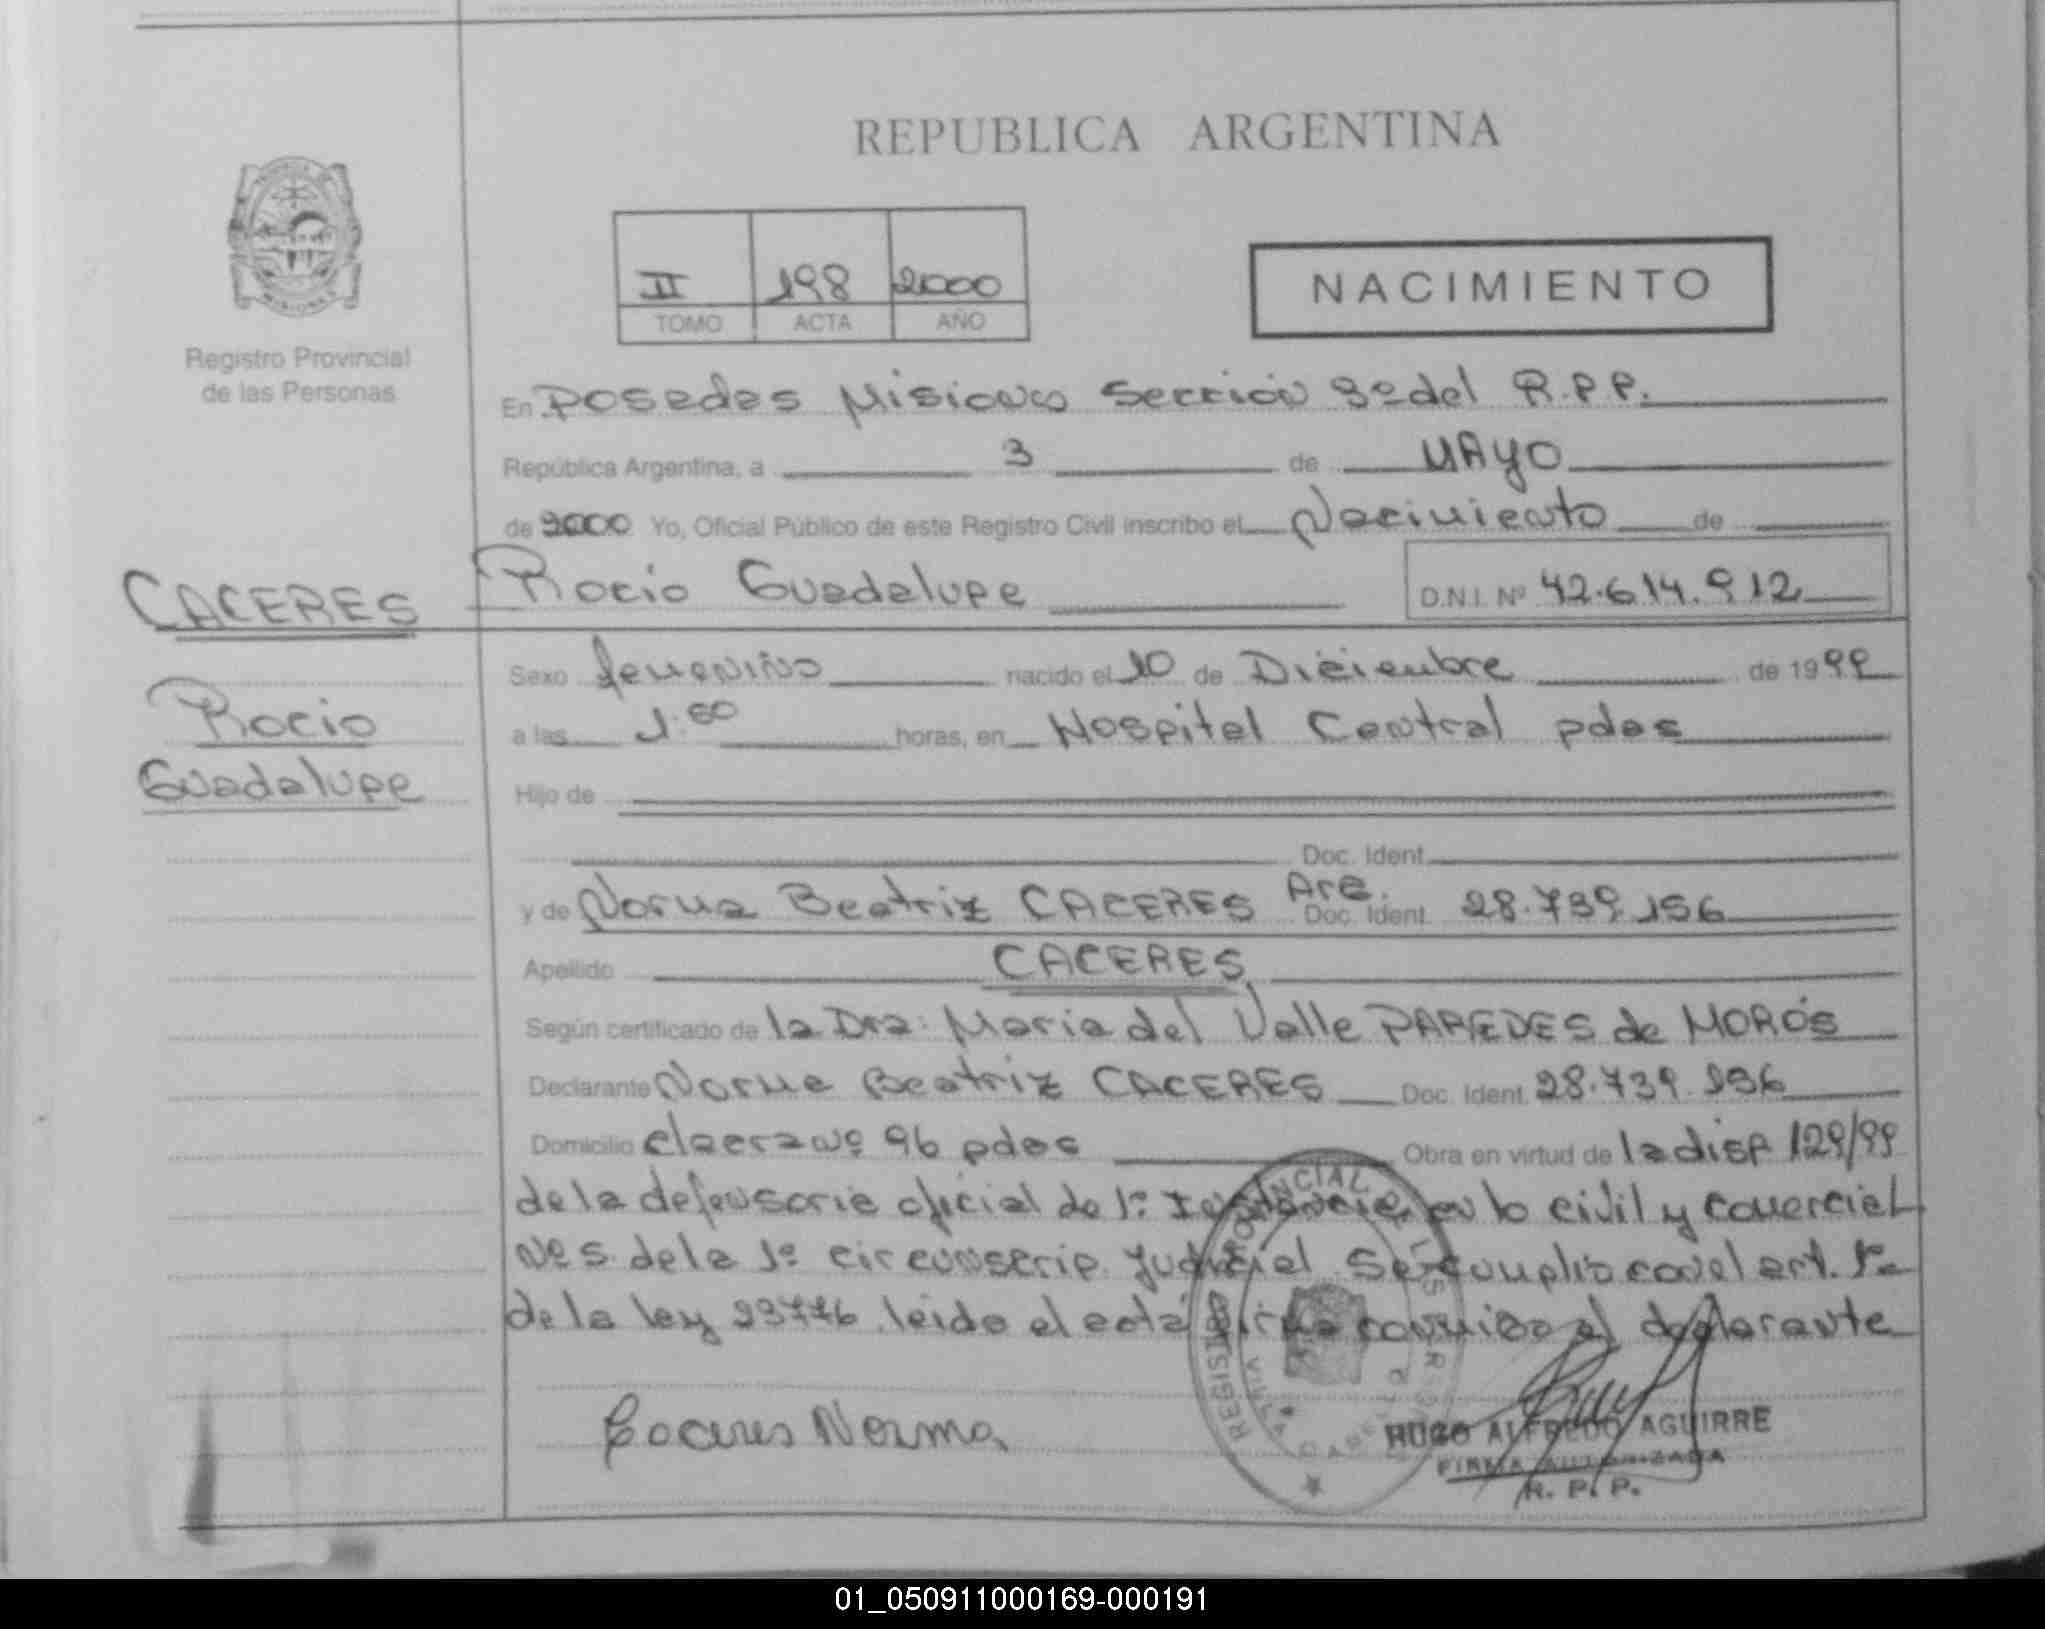 REPUBLICA ARGENTINA
MISIONES
II 198 2000
TOMO ACTA AÑO
NACIMIENTO
Registro Provincial
de las Personas
En Posadas Misiones Sección 3º del R.P.P.
República Argentina, a 3 de MAYO
de 2000 Yo, Oficial Público de este Registro Civil inscribo el Nacimiento de
CACERES
Rocio Guadalupe D.N.I. Nº 42.614.912
Sexo femenino nacido el 10 de Diciembre de 1999
Rocio
a las horas, en Hospital Central pdas
Guadalupe
Hijo de
Doc. Ident.
y de Norma Beatriz CACERES Arg. Doc. Ident. 28.739.156
Apellido CACERES
Según certificado de la Dra: Maria del Valle PAREDES de MOROS
Declarante Norma Beatriz CACERES Doc. Ident. 28.739.156
Domicilio chacra Nº 96 pdas Obra en virtud de la disp 129/99
de la defensoria oficial de 1º Instancia en lo civil y comercial
Nº 5 de la 1º circunscrip. Judicial Se cumplio con el art. 1º
de la ley 23776 leido el acta firma conmigo el declarante
Caceres Norma
REGISTRO PROVINCIAL
HUGO ALFREDO AGUIRRE
FIRMA AUTORIZADA
R. P. P.
01_050911000169-000191